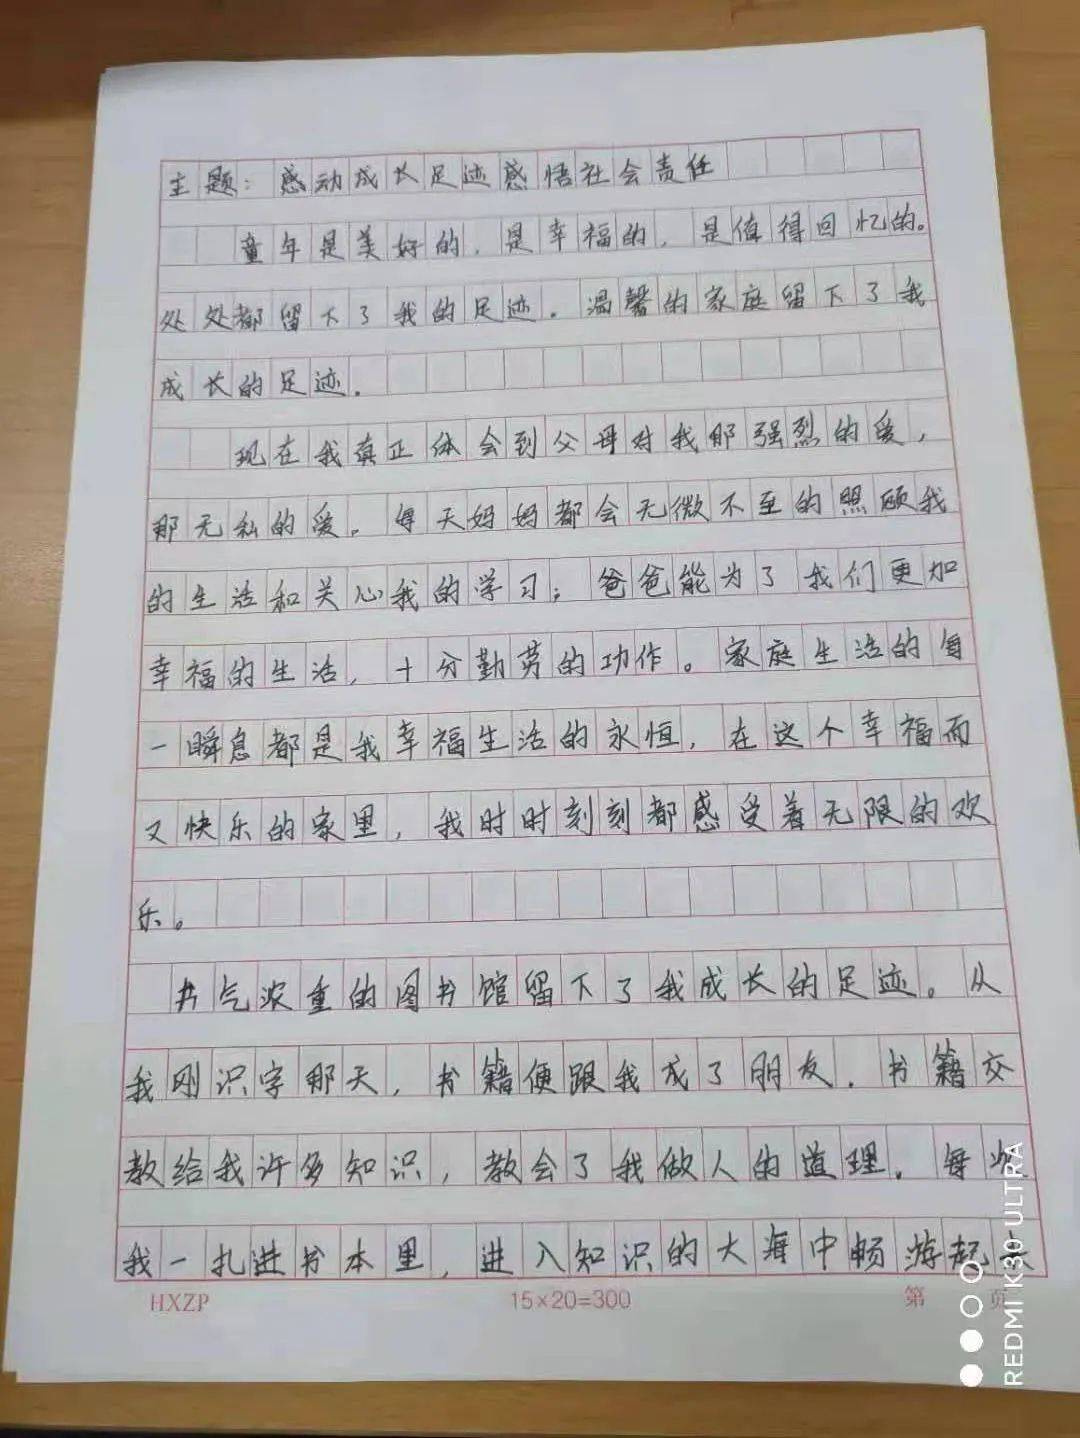 主题：感动成长足迹感悟社会责任
童年是美好的，是幸福的，是值得回忆的。
处处都留下了我的足迹。温馨的家庭留下了我
成长的足迹。
现在我真正体会到父母对我那强烈的爱，
那无私的爱。每天妈妈都会无微不至的照顾我
的生活和关心我的学习；爸爸能为了我们更加
幸福的生活，十分勤劳的功作。家庭生活的每
一瞬息都是我幸福生活的永恒，在这个幸福而
又快乐的家里，我时时刻刻都感受着无限的欢
乐。
书气浓重的图书馆留下了我成长的足迹。从
我刚识字那天，书籍便跟我成了朋友．书籍交
教给我许多知识，教会了我做人的道理．每
我一扎进书本里，进入知识的大海中畅游起
HXZP
15×20=300
第 页
REDMI K30 ULTRA